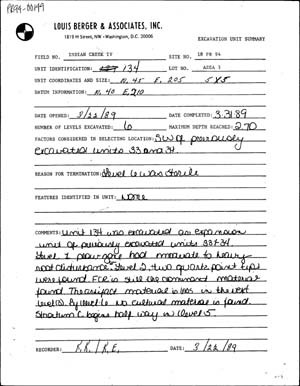 PB99-00149
LOUIS BERGER & ASSOCIATES, INC.
1819 H Street, NW · Washington, D.C. 20006
EXCAVATION UNIT SUMMARY
FIELD NO. INDIAN CREEK IV SITE NO. 18 PR 94
UNIT IDENTIFICATION: 134 LOT NO. AREA 3
UNIT COORDINATES AND SIZE: N. 45 E. 205 5x5
DATUM INFORMATION: N. 40 E. 210
DATE OPENED: 3/22/89 DATE COMPLETED: 3.31.89
NUMBER OF LEVELS EXCAVATED: 6 MAXIMUM DEPTH REACHED: 2.70
FACTORS CONSIDERED IN SELECTING LOCATION: SW of previously
excavated units 33 and 34.
REASON FOR TERMINATION: Level 6 was sterile
FEATURES IDENTIFIED IN UNIT: none
COMMENTS: Unit 134 was excavated as expansion
unit of previously excavated units 33+34.
Level 1 plow zone had moderate to heavy
root disturbance. Level 2, two quartz point tips
were found. FCR is still the dominant material
found. The artifact material is less in the next
level(s). By level 6 no cultural material is found.
Stratum C begins half way in level 5.
RECORDER: R.R. / R.E. DATE: 3/22/89